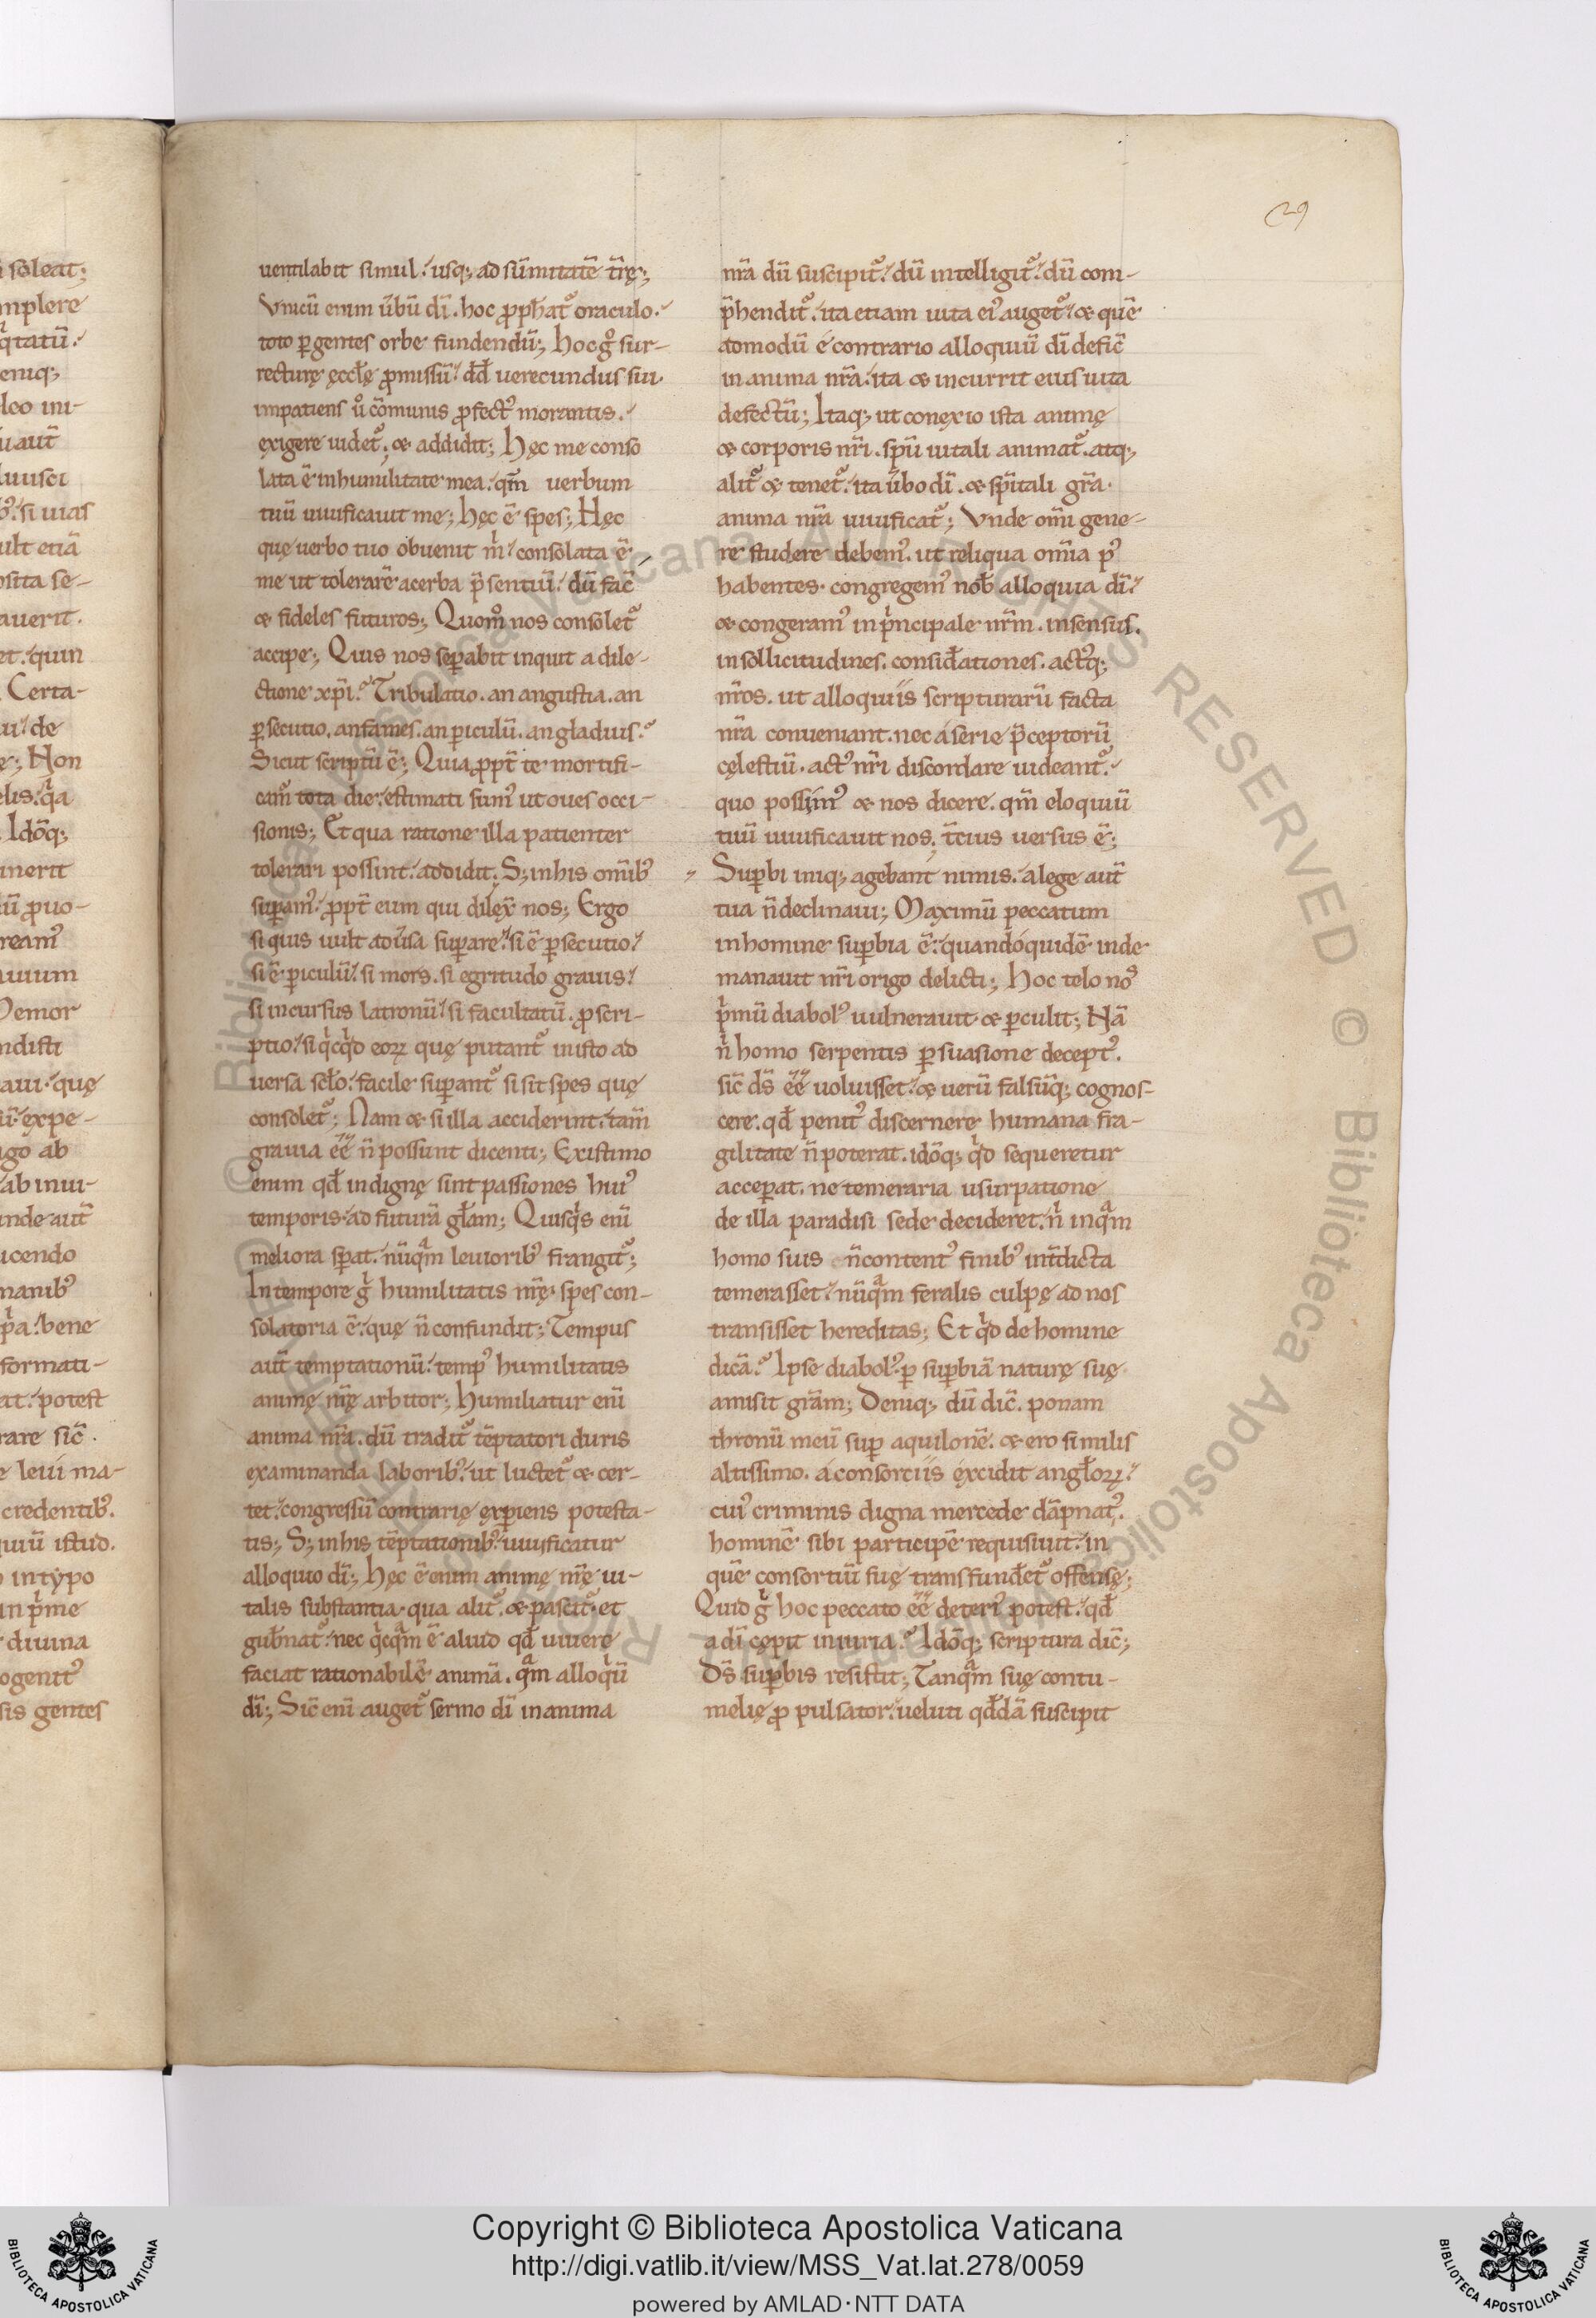 29
i soleat;
mplere
qͥtatū.
eniq;
leo ini-
u aut̄
luusci
b᷒. si uias
ult etiā
osita se-
auerit.
et. quin
Certa-
ui. de
ę; Non
elis. qͥa
Idōq;
inerit
ū ꝓuo-
ream᷒
uuium
Demor
ndisti
aui. quę
ū. expe-
igo ab
ab inui-
inde aut̄
ucendo
manib᷒
pͥa. bene
formati-
at. potest
rare sic̄.
e leui ma-
credentib᷒.
quiū istud.
in typo
in pͥme
diuina
ogenit᷒
sis gentes
uentilabit simul. usq; ad sūmitatē t̄rę;
Vnicū enim ūbū dī. hoc ꝓph̄at᷑ oraculo.
toto ꝑ gentes orbe fundendū; hoc gͦ sur-
recturę ęccłę ꝓmissū. dd̄ uerecundus sui.
impatiens uͦ cōmunis ꝓfect᷒ morantis.
exigere uidet᷑. & addidit; hęc me conso
lata ē in humilitate mea. qm̄ uerbum
tuū uiuificauit me; hęc ē spes; Hęc
quę uerbo tuo obuenit mͥ. consolata ē
me ut tolerarē acerba p̄sentiū. dū fac̄
& fideles futuros; Quomͦ nos consolet᷑
accipe; Quis nos seꝑabit inquit a dile-
ctione xp̄i. Tribulatio. an angustia. an
ꝑsecutio. an fames. an ꝑiculū. an gladius.
Sicut scriptū ē; Quia ꝓpt̄ te mortifi-
cam᷒ tota die. estimati sum᷒ ut oues occi-
sionis; Et qua ratione illa patienter
tolerari possint. addidit. S; in his omīb᷒
suꝑam᷒. ꝓpt̄ eum qui dilex̄ nos; Ergo
si quis uult adūsa suꝑare. si ē ꝑsecutio.
si ē ꝑiculū. si mors. si egritudo grauis.
si incursus latronū. si facultatū. ꝓscri-
ptio. si qͥcqͥd eoꝝ quę putant᷑ in isto ad
uersa scło. facile suꝑant᷑ si sit spes quę
consolet᷑; Nam & si illa acciderint. tam̄
grauia ēē n̄ possunt dicenti; Existimo
enim qd̄ indignę sint passiones hui᷒
temporis. ad futurā głam; Quisqͥs enī
meliora sꝑat. nūqͣm leuiorib᷒ frangit᷑;
In tempore gͥ humilitatis nr̄ę. spes con-
solatoria ē. quę n̄ confundit; Tempus
aut̄ temptationū. temp᷒ humilitatis
animę nr̄ę arbitor; humiliatur enī
anima nr̄a. dū tradit᷑ tēptatori duris
examinanda laborib᷒. ut luctet᷑ & cer-
tet. congressū contrarię exꝑiens potesta-
tis; S; in his tēptationib᷒. uiuificatur
alloquio dī; hęc ē enim animę nr̄ę ui-
talis substantia. qua alit᷑. & pascit᷑. et
gub̄nat᷑. nec qͥcqͣm ē aliud qd̄ uiuere
faciat rationabilē animā. qͣm alloqͥū
dī; Sic̄ enī auget᷑ sermo dī in anima
nr̄a dū suscipit᷑. dū intelligit᷑. dū com-
p̄hendit᷑. ita etiam uita ei᷒ auget᷑. & quē
admodū é contrario alloquiū dī defic̄
in anima nr̄a. ita & incurrit eius uita
defectū; Itaq; ut conexio ista animę
& corporis nr̄i. spū uitali animat᷑. atq;
alit᷑ & tenet᷑. ita ūbo dī. & spītali gr̄a.
anima nr̄a uiuificat᷑; Vnde omī gene-
re studere debem᷒. ut reliqua omīa p᷒
habentes. congregem᷒ nob̄ alloquia dī.
& congeram᷒ in pͥncipale nr̄m. in sensus.
in sollicitudines. consid̄ationes. act᷒q;
nr̄os. ut alloquiis scripturarū facta
nr̄a conueniant. nec á serie p̄ceptorū
cęlestiū. act᷒ nr̄i discordare uideant᷑.
quo possim᷒ & nos dicere. qm̄ eloquiū
tuū uiuificauit nos. t̄cius uersus ē;
Suꝑbi iniq; agebant nimis. a lege aut̄
tua n̄ declinaui; Maximū peccatum
in homine suꝑbia ē. quandóquidē inde
manauit nr̄i origo delicti; hoc telo nos
pͥmū diabol᷒ uulnerauit & ꝑculit; Nā
nͥ homo serpentis ꝑsuasione decept᷒.
sic̄ ds̄ ēē uoluisset. & uerū falsūq; cognos-
cere. qd̄ penit᷒ discernere humana fra-
gilitate n̄ poterat. idōq; qͥd sequeretur
acceꝑat. ne temeraria usurpatione
de illa paradisi sede decideret. nͥ inqͣm
homo suis n̄ content᷒ finib᷒ int̄dicta
temerasset. nūqͣm feralis culpę ad nos
transisset hereditas; Et qͥd de homine
dicā. Ipse diabol᷒. ꝑ suꝑbiā naturę suę
amisit gr̄am; Deniq; dū dic̄. ponam
thronū meū suꝑ aquilonē. & ero similis
altissimo. á consortiis éxcidit angłoꝝ.
cui᷒ criminis digna mercede dāpnat᷒.
hominē sibi participē requisiuit. in
quē consortiū suę transfund̄et᷑ offensę;
Quid gͥ hoc peccato ēē deteri᷒ potest. qd̄
a dī cępit iniuria. Idōq; scriptura dic̄;
Ds̄ suꝑbis resistit; Tanqͣm suę contu-
melię ꝓpulsator. ueluti qd̄dā suscipit
© Biblioteca Apostolica Vaticana ALL RIGHTS RESERVED
Copyright © Biblioteca Apostolica Vaticana
http://digi.vatlib.it/view/MSS_Vat.lat.278/0059
powered by AMLAD·NTT DATA
BIBLIOTECA APOSTOLICA VATICANA
BIBLIOTECA APOSTOLICA VATICANA